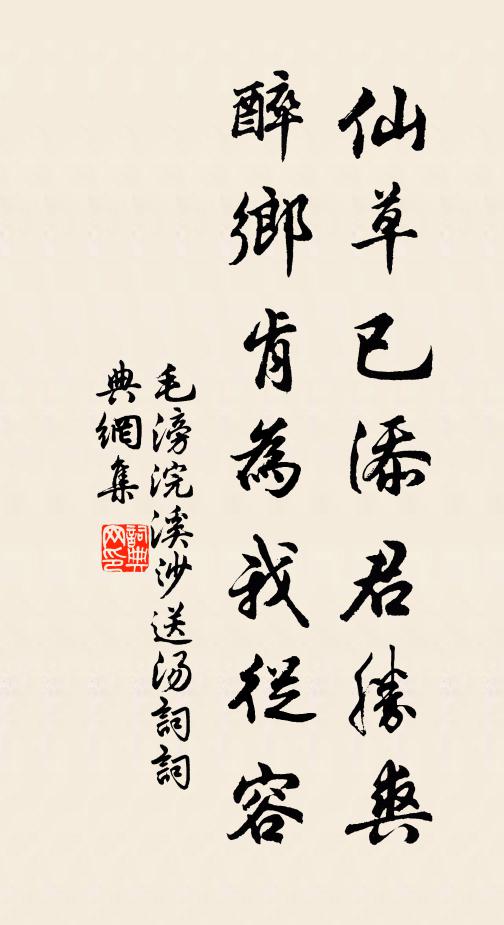 仙草已添君勝爽
醉鄉肯為我從容
毛滂浣溪沙送汤詞詞
典網集
詞典網印